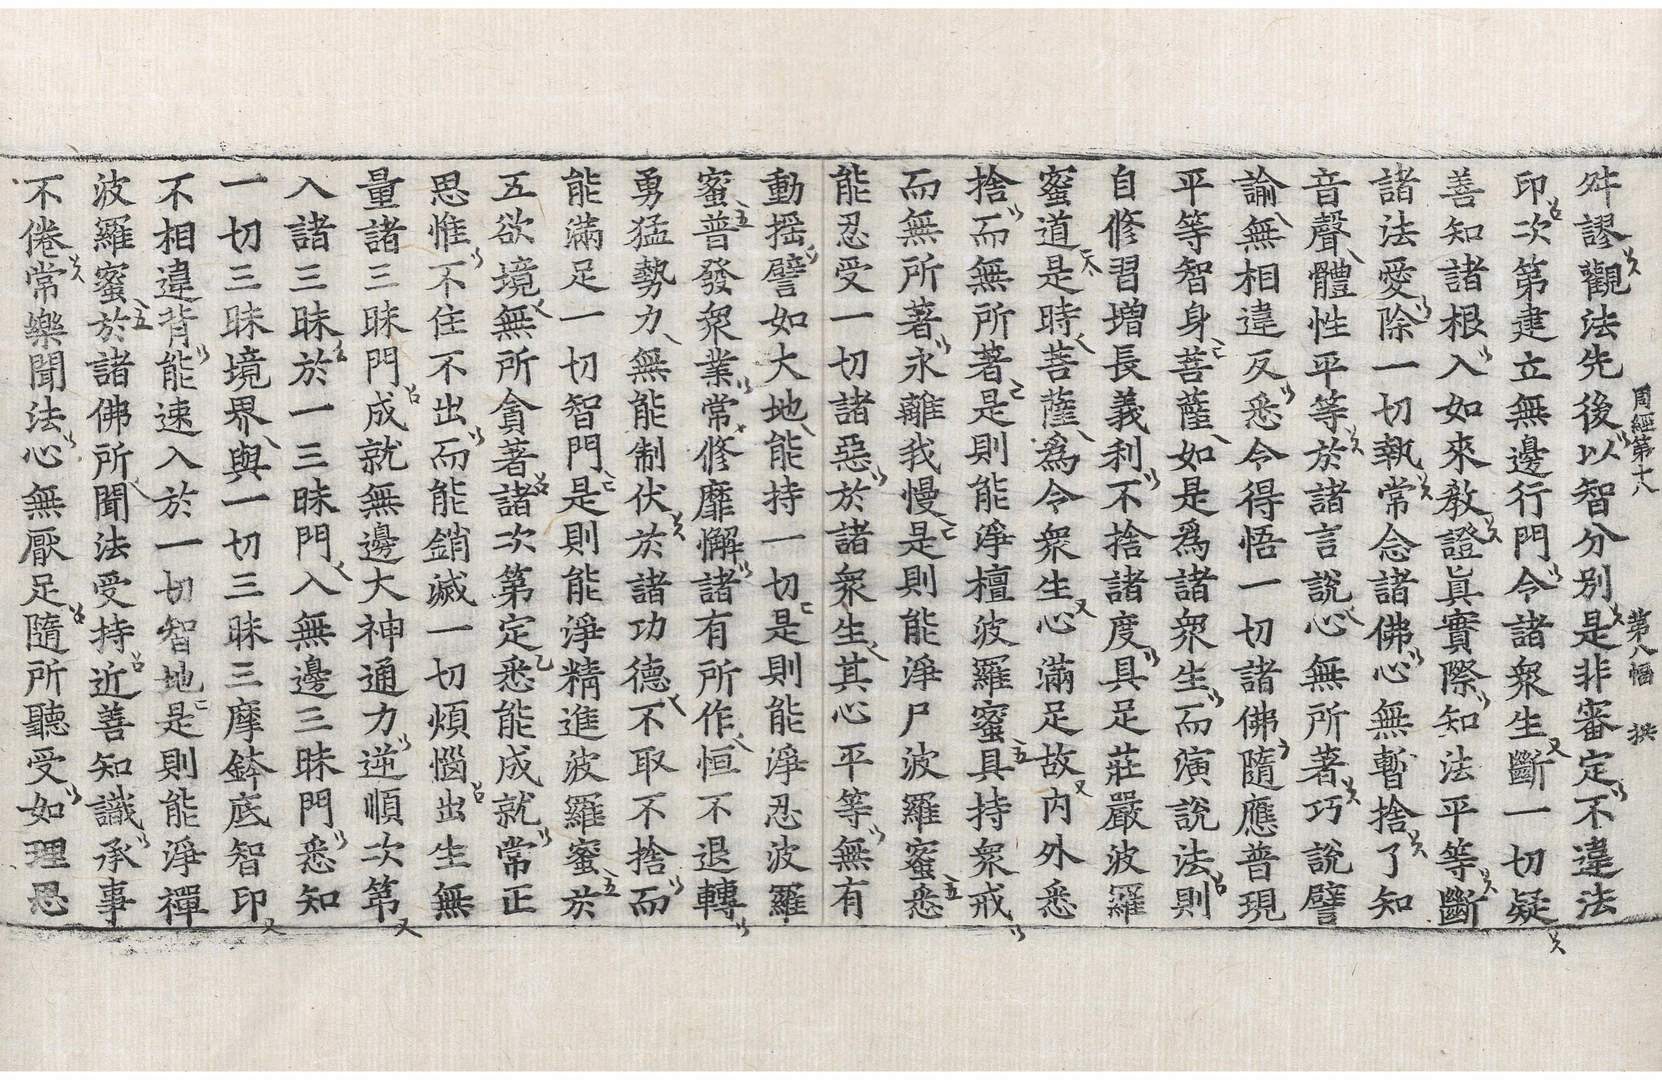 舛謬觀法先後以智分別是非審定不違法
印次第建立無邊行門令諸衆生斷一切疑
善知諸根入如來教證眞實際知法平等斷
諸法愛除一切執常念諸佛心無暫捨了知
音聲體性平等於諸言說心無所著巧說譬
諭無相違反悉令得悟一切諸佛隨應普現
平等智身菩薩如是爲諸衆生而演說法則
自修習增長義利不捨諸度具足莊嚴波羅
蜜道是時菩薩爲令衆生心滿足故内外悉
捨而無所著是則能淨檀波羅蜜具持衆戒
而無所著永離我慢是則能淨尸波羅蜜悉
能忍受一切諸惡於諸衆生其心平等無有
動揺譬如大地能持一切是則能淨忍波羅
蜜普發衆業常修靡懈諸有所作恒不退轉
勇猛勢力無能制伏於諸功德不取不捨而
能滿足一切智門是則能淨精進波羅蜜於
五欲境無所貪著諸次第定悉能成就常正
思惟不住不出而能銷滅一切煩惱出生無
量諸三昧門成就無邊大神通力逆順次第
入諸三昧於一三昧門入無邊三昧門悉知
一切三昧境界與一切三昧三摩鉢底智印
不相違背能速入於一切智地是則能淨禪
波羅蜜於諸佛所聞法受持近善知識承事
不倦常樂聞法心無厭足隨所聽受如理思
周經第十八 第八幅